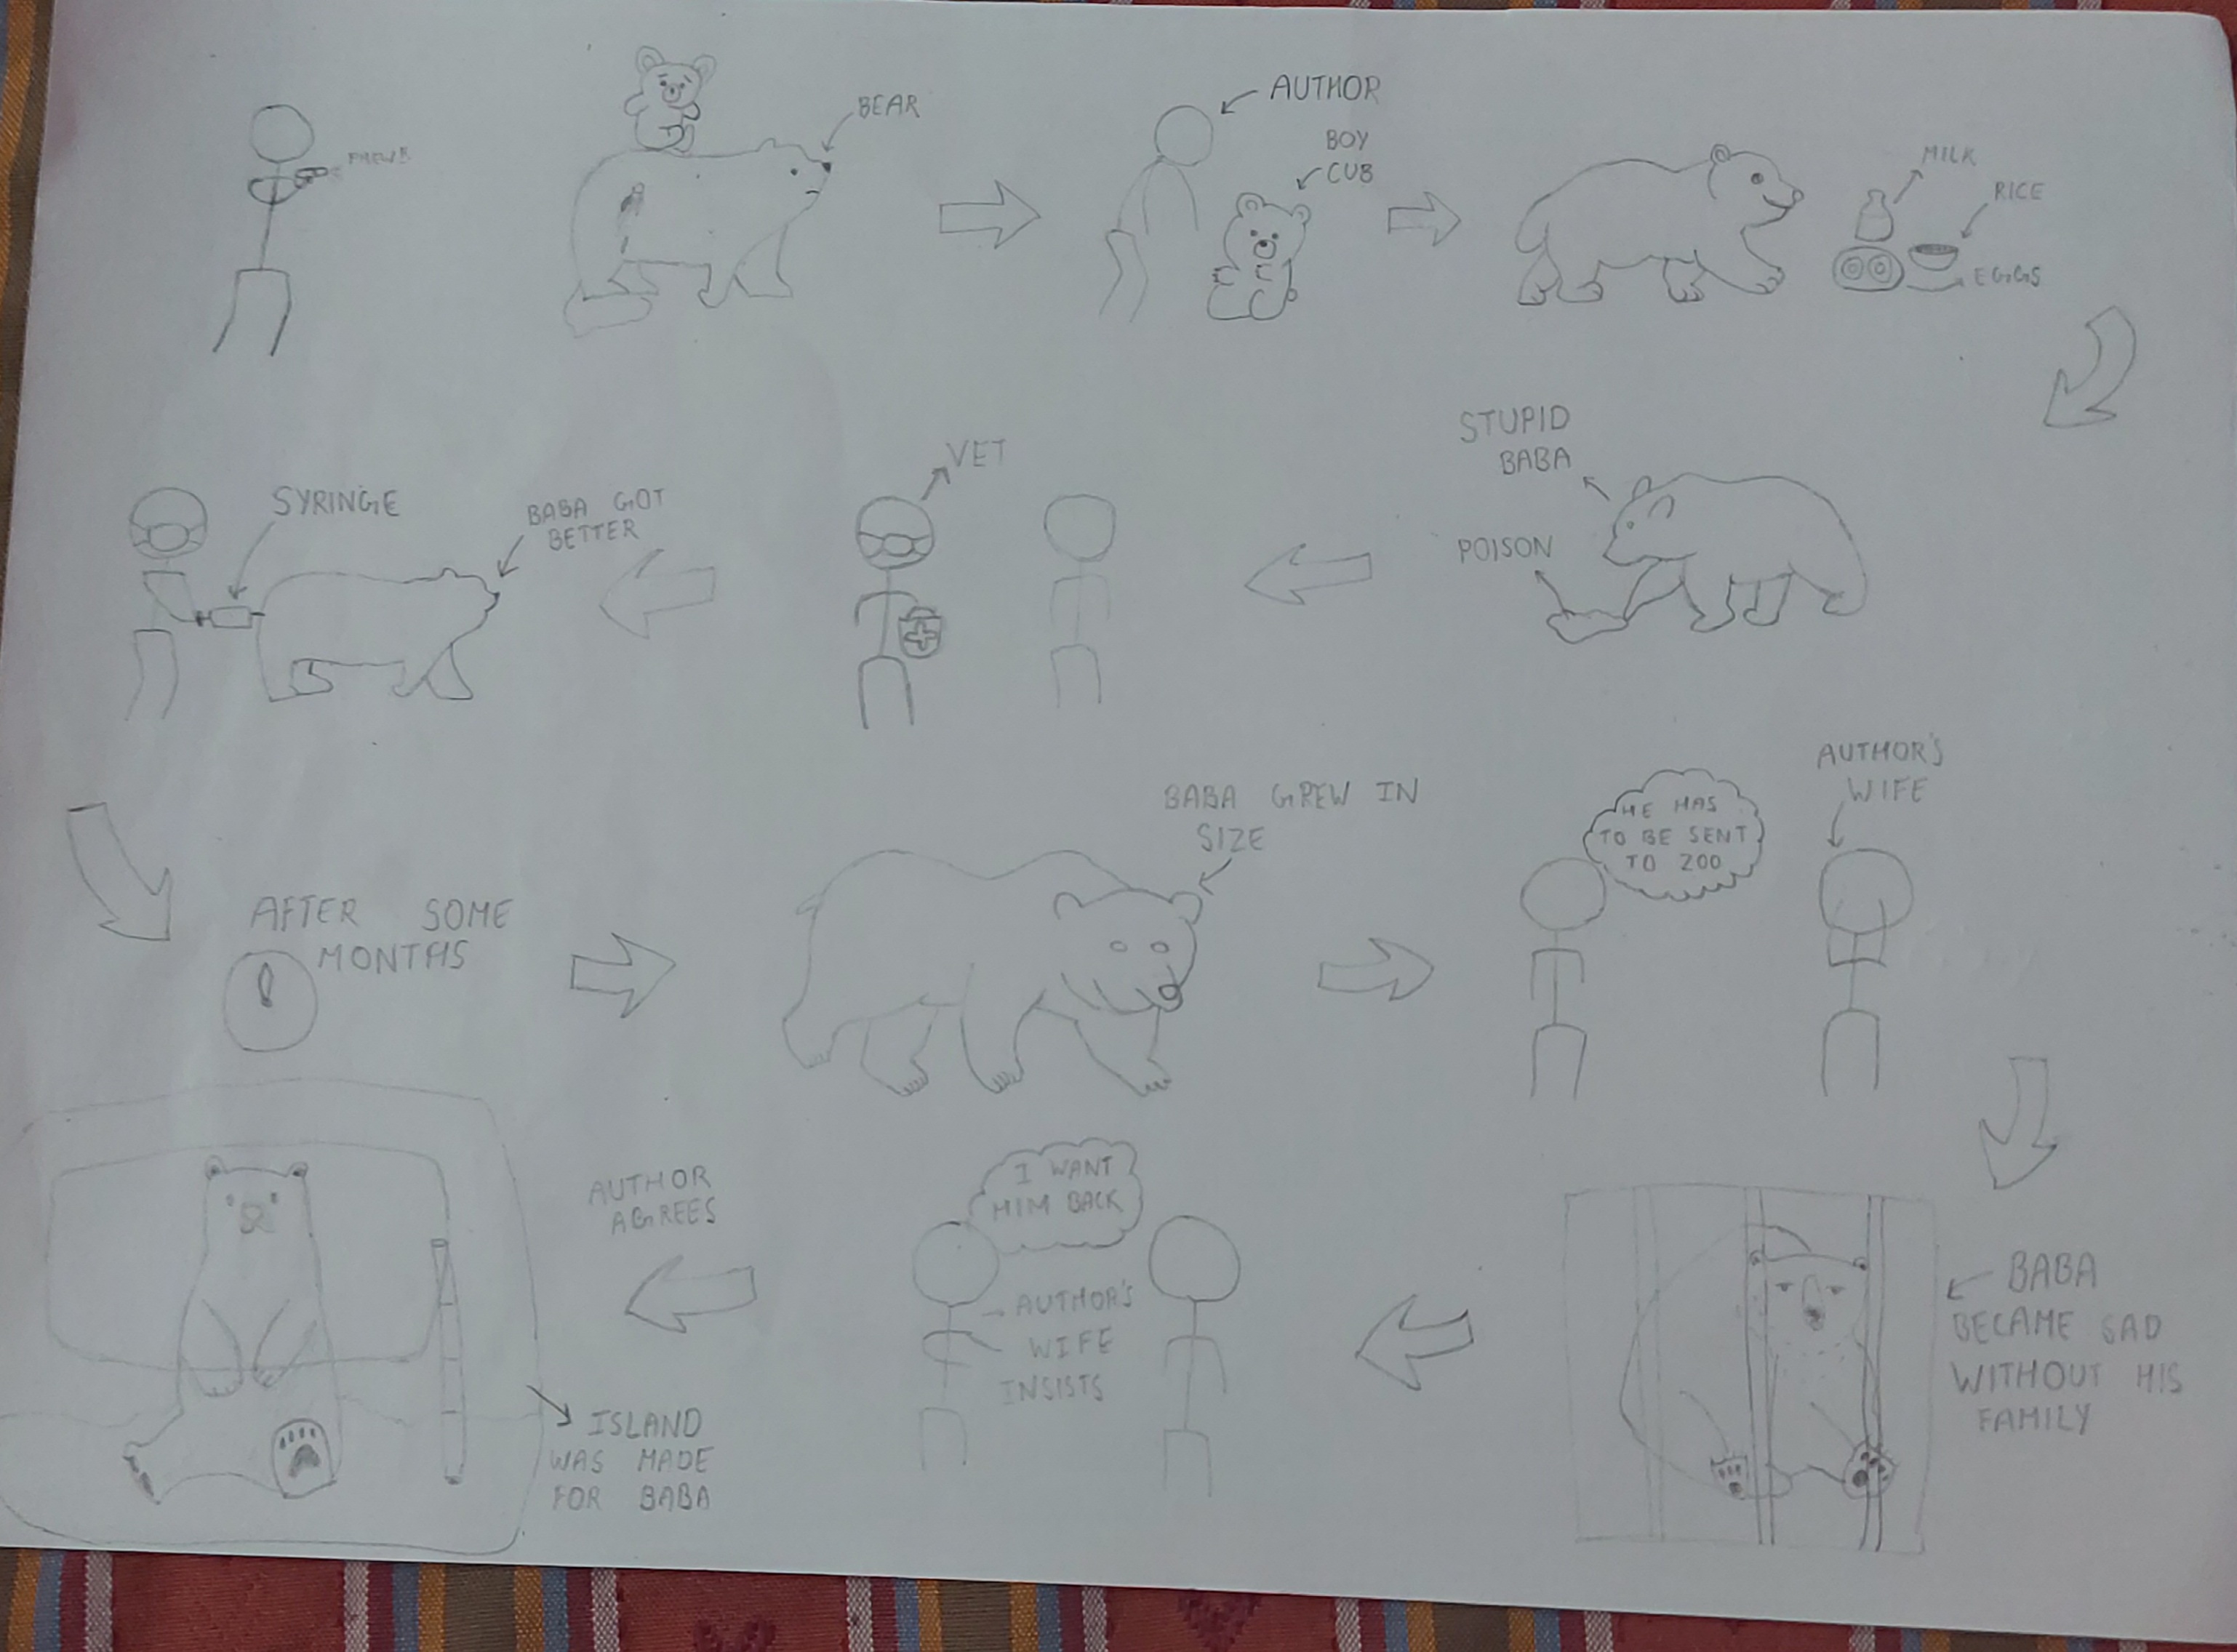 BEAR
AUTHOR
BOY
CUB
MILK
RICE
EGGS
STUPID
BABA
POISON
VET
SYRINGE
BABA GOT
BETTER
AFTER SOME
MONTHS
BABA GREW IN
SIZE
HE HAS
TO BE SENT
TO ZOO
AUTHOR'S
WIFE
BABA
BECAME SAD
WITHOUT HIS
FAMILY
I WANT
HIM BACK
AUTHOR'S
WIFE
INSISTS
AUTHOR
AGREES
ISLAND
WAS MADE
FOR BABA